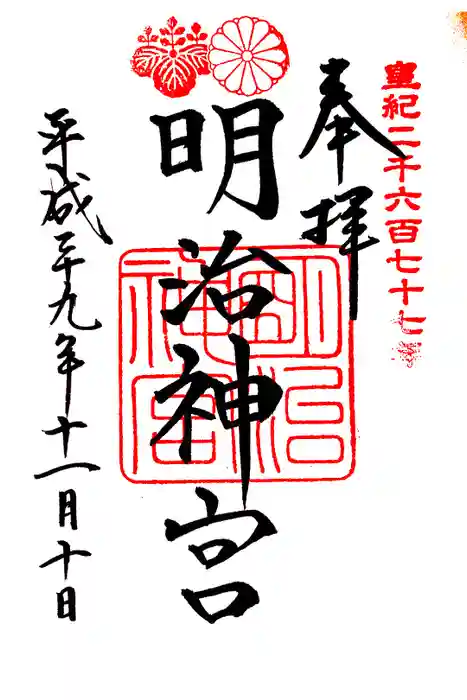 皇紀二千六百七十七年
奉拝
明治神宮
明治神宮
平成二十九年十一月十日